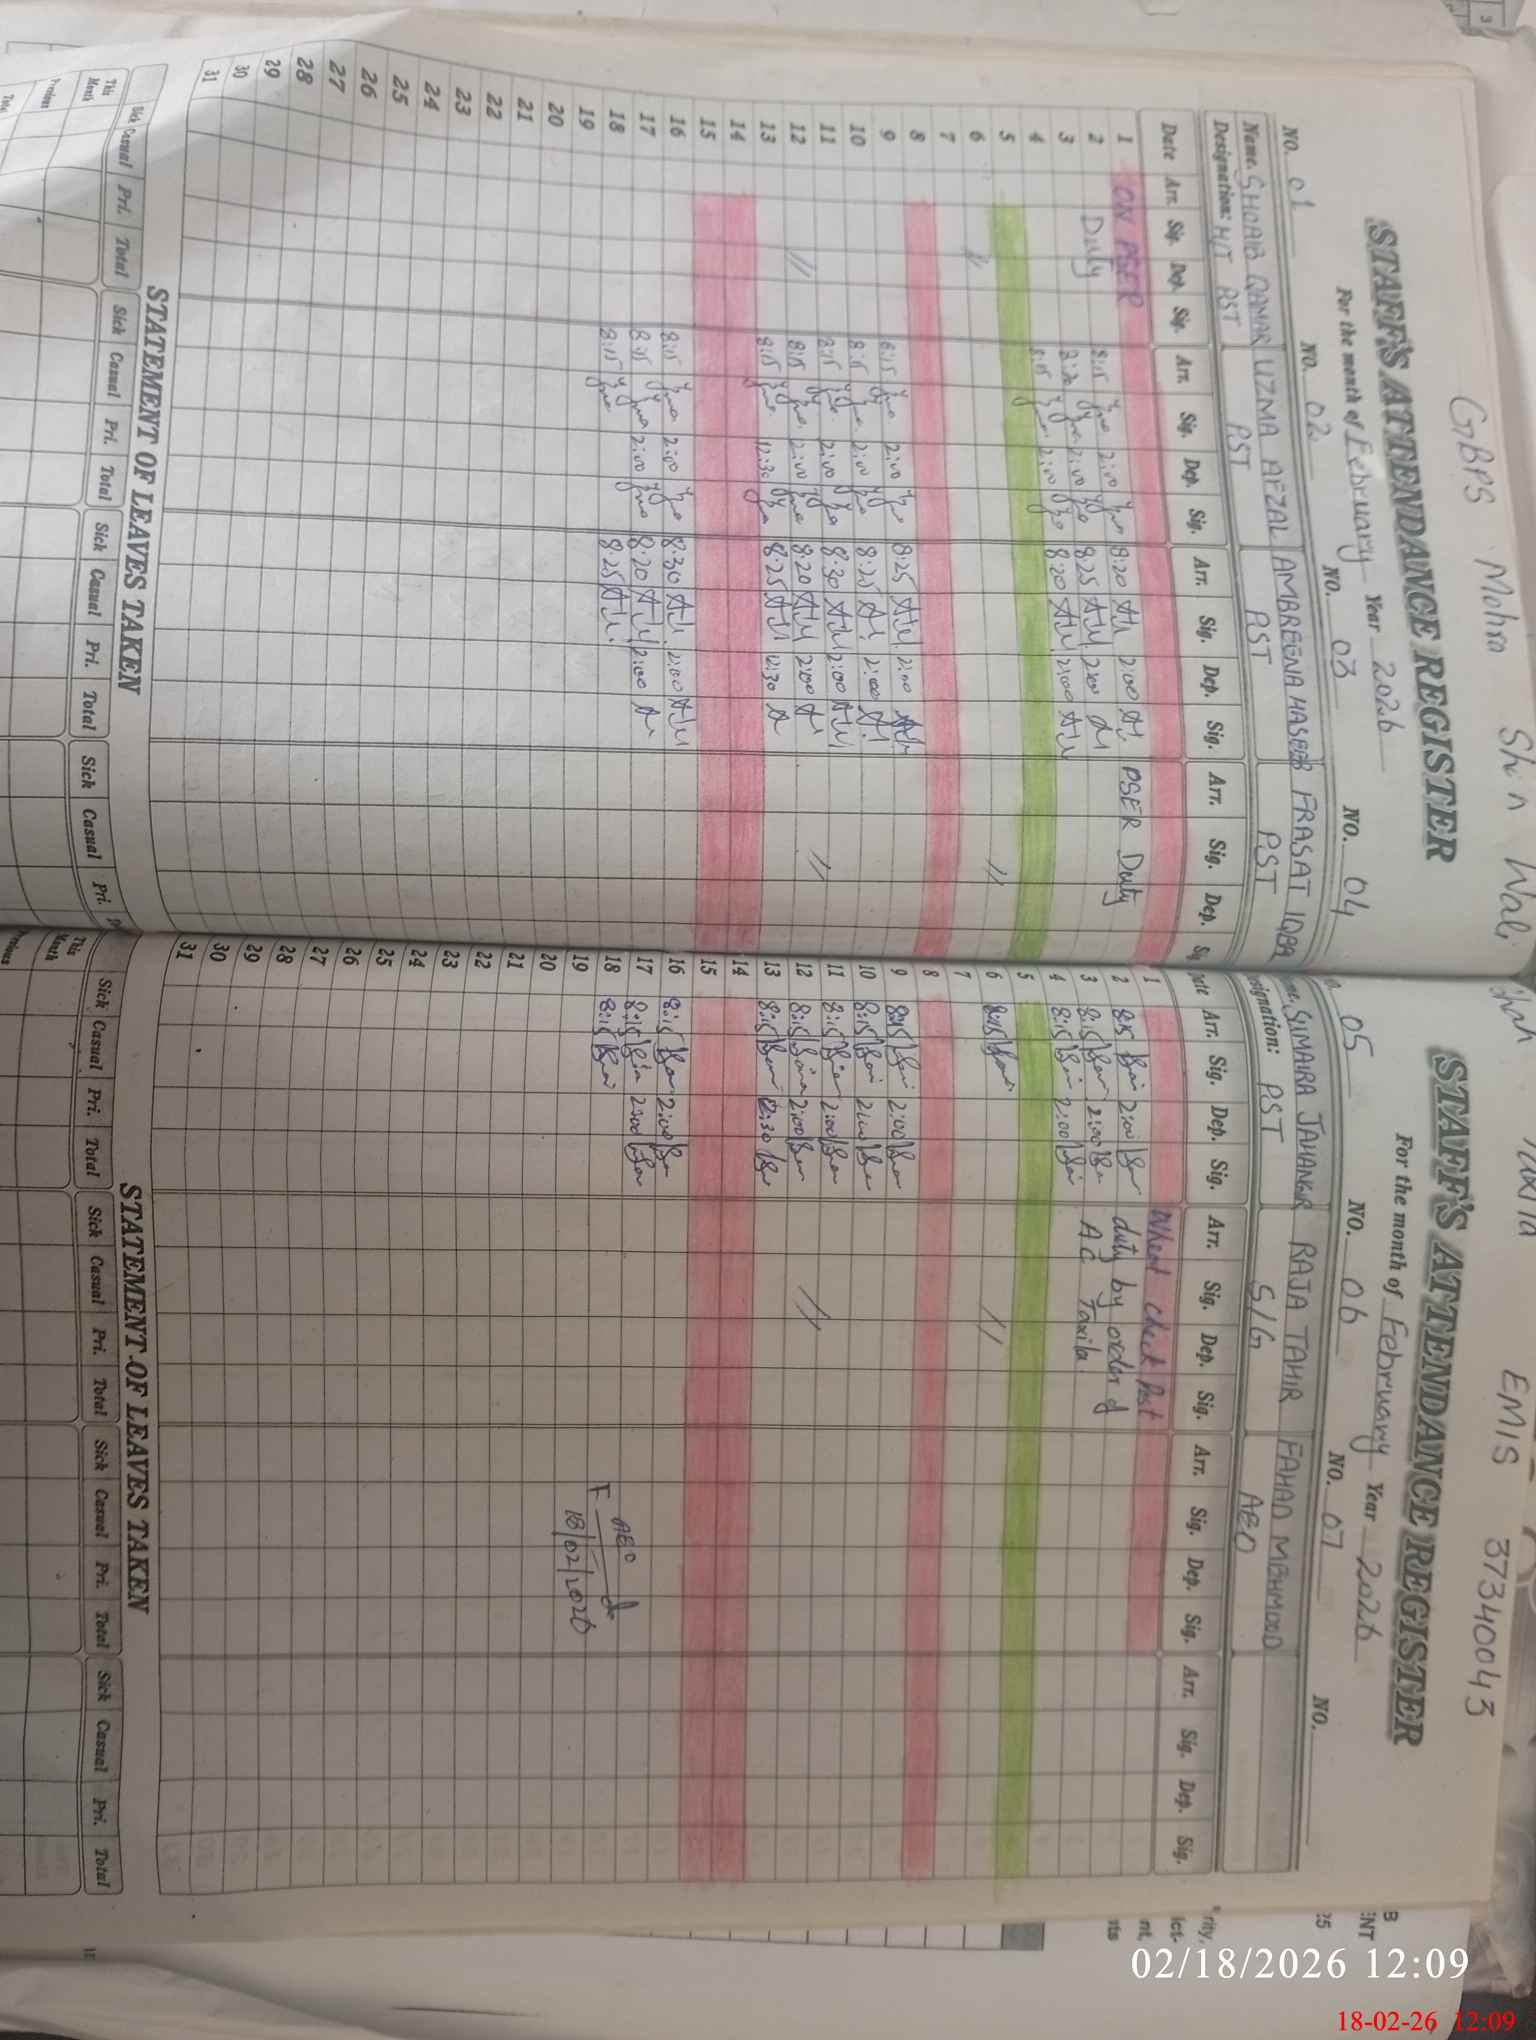 GBPS Mohra Shah Wali Shah Taxila EMIS 37340043
STAFF'S ATTENDANCE REGISTER
For the month of February Year 2026
NO. 01 NO. 02 NO. 03 NO. 04
Name. SHOAIB QAMAR UZMA AFZAL AMBREENA HASEEB FRASAT IQBAL
Designation: H/T PST PST PST PST
Date Arr. Sig. Dep. Sig. Arr. Sig. Dep. Sig. Arr. Sig. Dep. Sig. Arr. Sig. Dep. Sig.
1 ON PSER
2 Duty 8:15 2:00 8:20 2:00 PSER Duty
3 8:20 2:00 8:25 2:00
4 8:15 2:00 8:20 2:00
5
6 " "
7
8
9 8:15 2:00 8:25 2:00
10 8:15 2:00 8:25 2:00
11 8:15 2:00 8:30 2:00
12 " 8:15 2:00 8:20 2:00 "
13 8:15 12:30 8:25 12:30
14
15
16 8:15 2:00 8:30 2:00
17 8:15 2:00 8:20 2:00
18 8:15 8:25
19
20
21
22
23
24
25
26
27
28
29
30
31
STATEMENT OF LEAVES TAKEN
Sick Casual Pri. Total Sick Casual Pri. Total Sick Casual Pri. Total Sick Casual Pri.
This Month
Previous
Total
STAFF'S ATTENDANCE REGISTER
For the month of February Year 2026
05 NO. 06 NO. 07 NO.
SUMAIRA JAHANGIR RAJA TAHIR FAHAD MEHMOOD
signation: PST S/G AEO
Date Arr. Sig. Dep. Sig. Arr. Sig. Dep. Sig. Arr. Sig. Dep. Sig. Arr. Sig. Dep. Sig.
1 Wheat Check Post
2 8:15 2:00 duty by order of
3 8:15 2:00 AC Taxila
4 8:15 2:00
5
6 8:15 "
7
8
9 8:15 2:00
10 8:15 2:00
11 8:15 2:00
12 8:15 2:00 "
13 8:15 12:30
14
15
16 8:15 2:00
17 8:15 2:00 AEO
18 8:15
19 18/02/2026
20
21
22
23
24
25
26
27
28
29
30
31
STATEMENT OF LEAVES TAKEN
Sick Casual Pri. Total Sick Casual Pri. Total Sick Casual Pri. Total Sick Casual Pri. Total
This Month
Previous
02/18/2026 12:09
18-02-26 12:09